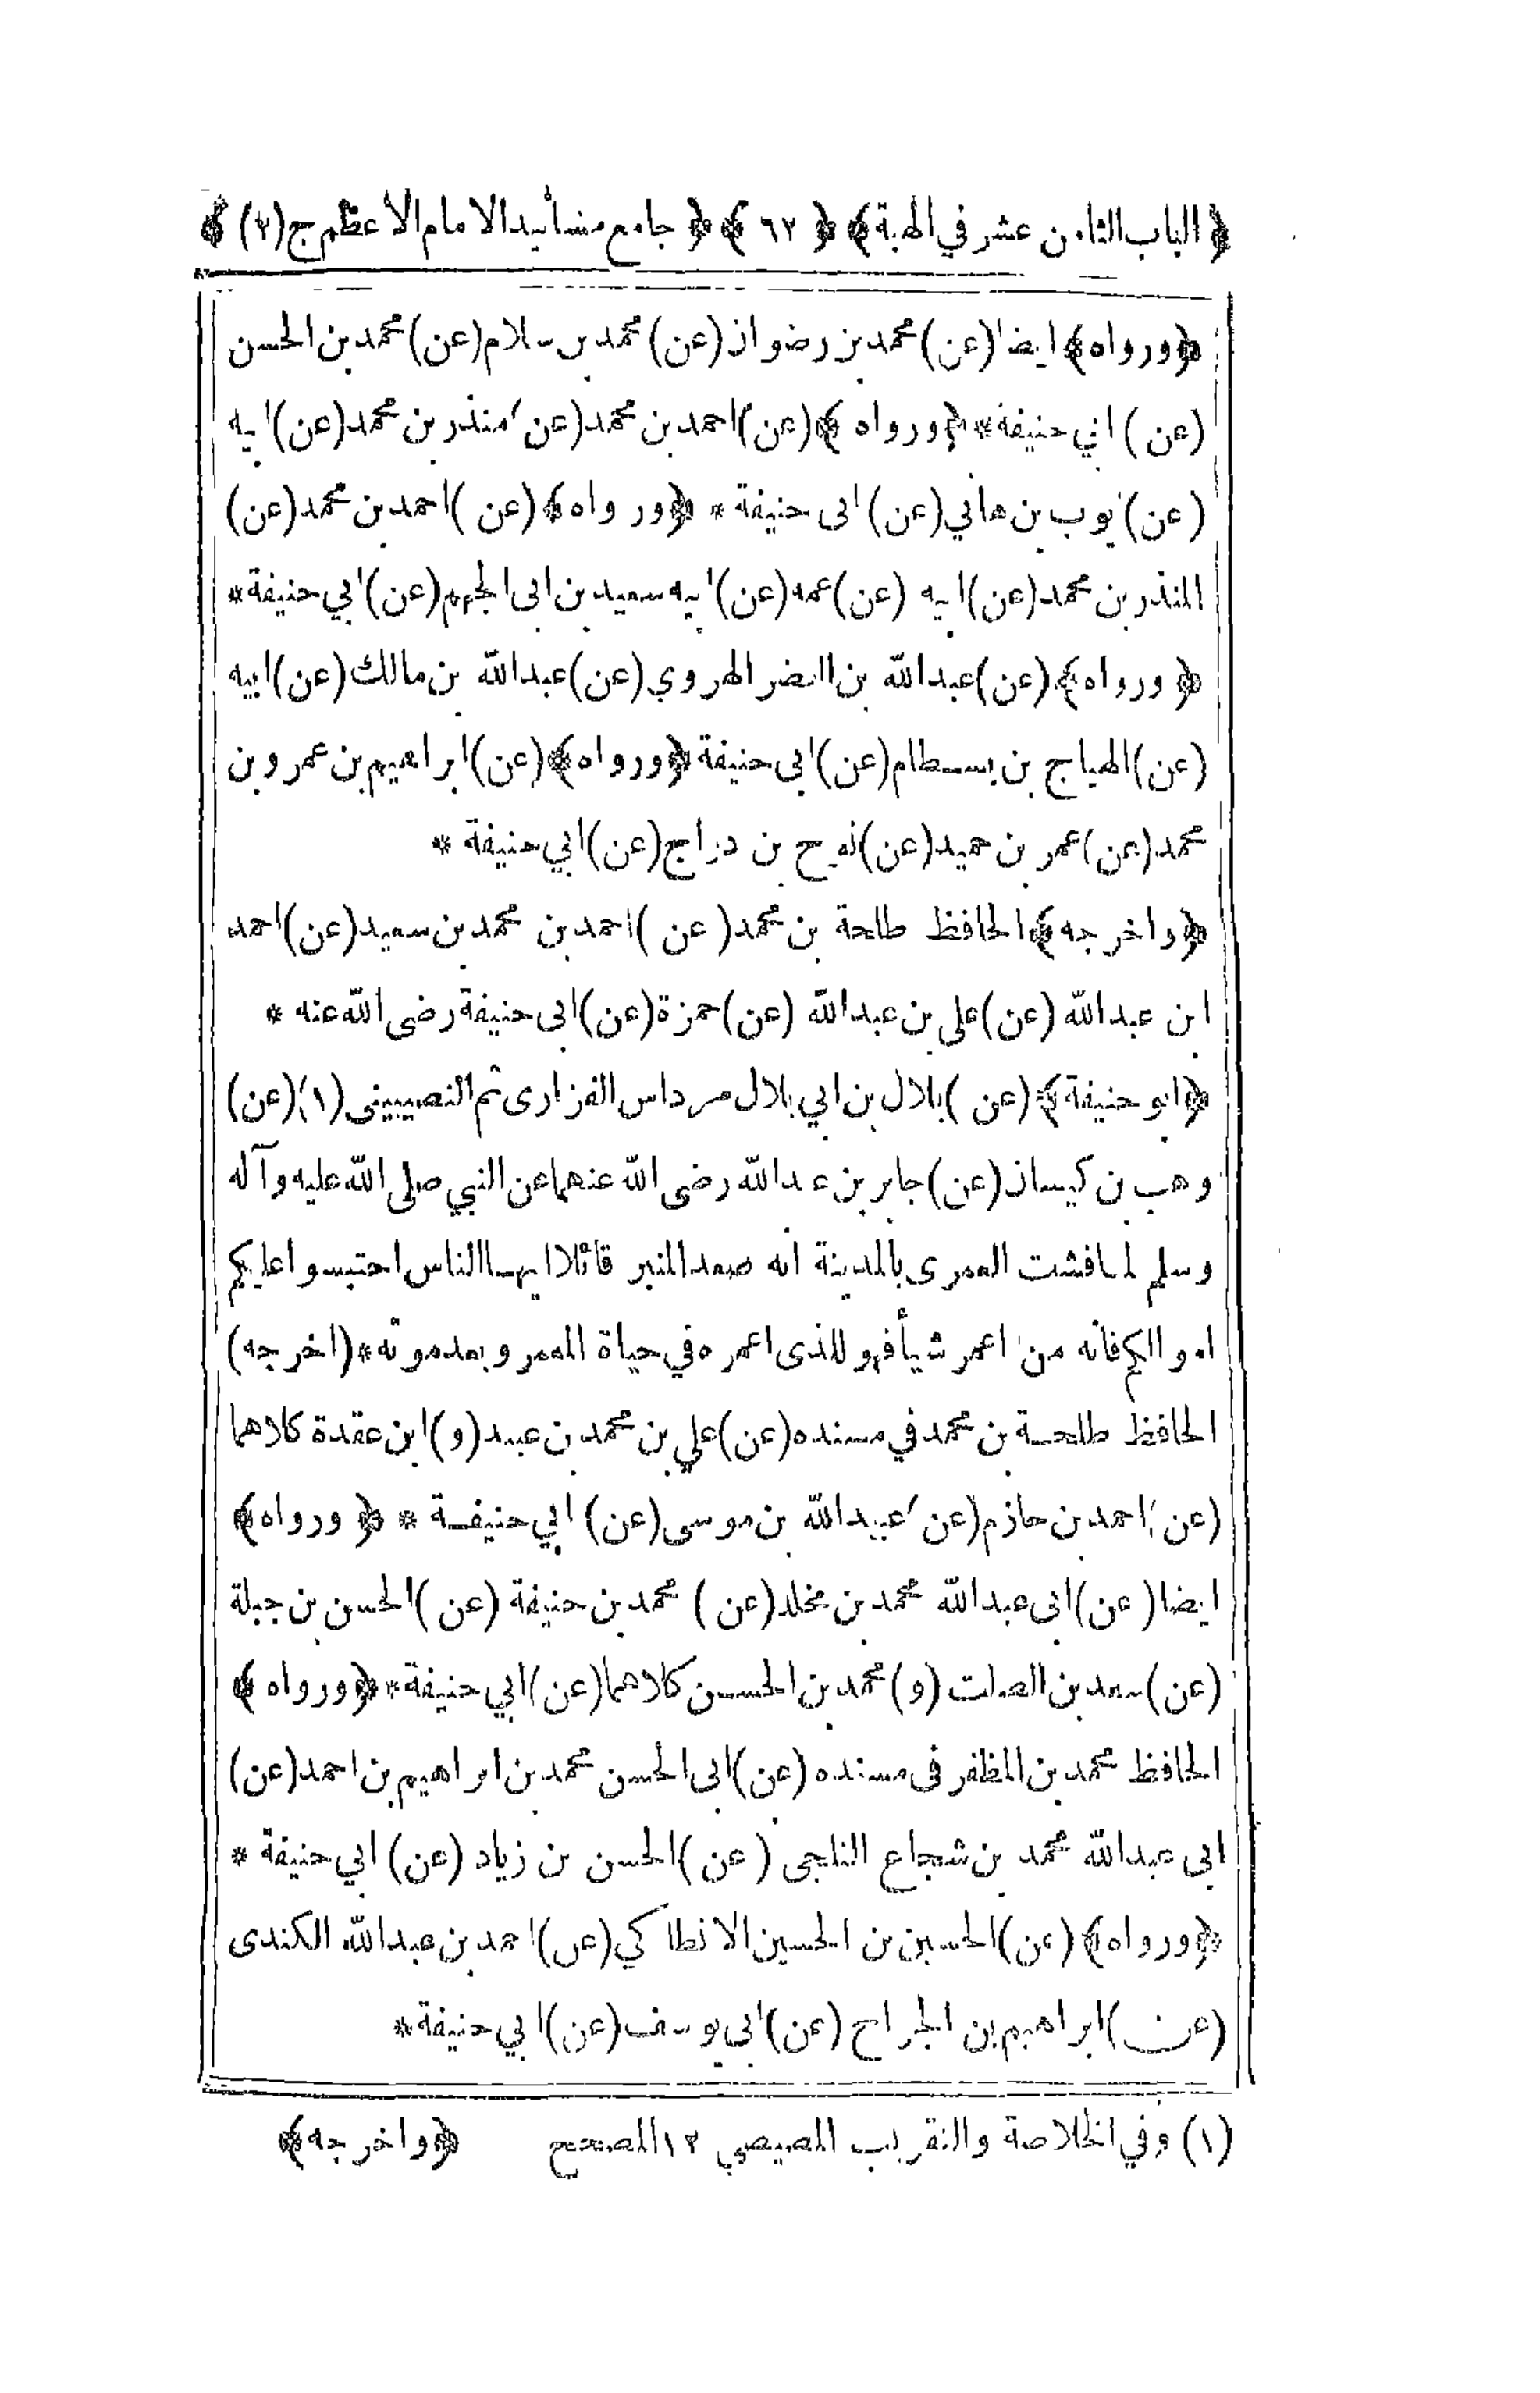 ﴿ الباب الثامن عشر في الهبة ﴾ ﴿ ٦٢ ﴾ ﴿ جامع مسانيد الامام الأعظم ج (٢) ﴾
﴿ ورواه ﴾ ايضا (عن) محمد بن رضوان (عن) محمد بن سلام (عن) محمد بن الحسن
(عن) ابي حنيفة * ﴿ ورواه ﴾ (عن) احمد بن محمد (عن) منذر بن محمد (عن) ابيه
(عن) ايوب بن هاني (عن) ابى حنيفة * ﴿ ورواه ﴾ (عن) احمد بن محمد (عن)
المنذر بن محمد (عن) ابيه (عن) عمه (عن) ابيه سعيد بن ابى الجهم (عن) ابي حنيفة *
﴿ ورواه ﴾ (عن) عبد الله بن النضر الهروي (عن) عبد الله بن مالك (عن) ابيه
(عن) الهياج بن بسطام (عن) ابى حنيفة ﴿ ورواه ﴾ (عن) ابراهيم بن عمرو بن
محمد (عن) عمر بن حميد (عن) نوح بن دراج (عن) ابي حنيفة *
﴿ واخرجه ﴾ الحافظ طلحة بن محمد (عن) احمد بن محمد بن سعيد (عن) احمد
ابن عبد الله (عن) على بن عبد الله (عن) حمزة (عن) ابى حنيفة رضى الله عنه *
﴿ ابو حنيفة ﴾ (عن) بلال بن ابي بلال مرداس الفزارى ثم النصيبينى (١) (عن)
وهب بن كيسان (عن) جابر بن عبد الله رضى الله عنهما عن النبي صلى الله عليه وآله
وسلم لما فشت العمرى بالمدينة انه صعد المنبر قائلا ايها الناس احتبسوا عليكم
اموالكم فانه من اعمر شيأ فهو للذى اعمره في حياة المعمر وبعد موته * (اخرجه)
الحافظ طلحة بن محمد في مسنده (عن) علي بن محمد بن عبيد (و) ابن عقدة كلاهما
(عن) احمد بن حازم (عن) عبيد الله بن موسى (عن) ابي حنيفة * ﴿ ورواه ﴾
ايضا (عن) ابى عبد الله محمد بن مخلد (عن) محمد بن حنيفة (عن) الحسن بن جبلة
(عن) سعد بن الصلت (و) محمد بن الحسن كلاهما (عن) ابي حنيفة * ﴿ ورواه ﴾
الحافظ محمد بن المظفر فى مسنده (عن) ابى الحسن محمد بن ابراهيم بن احمد (عن)
ابى عبد الله محمد بن شجاع الثلجى (عن) الحسن بن زياد (عن) ابي حنيفة *
﴿ ورواه ﴾ (عن) الحسين بن الحسين الانطاكي (عن) احمد بن عبد الله الكندى
(عن) ابراهيم بن الجراح (عن) ابى يوسف (عن) ابي حنيفة *
(١) وفي الخلاصة والتقريب المصيصي ١٢ المصحح ﴿ واخرجه ﴾